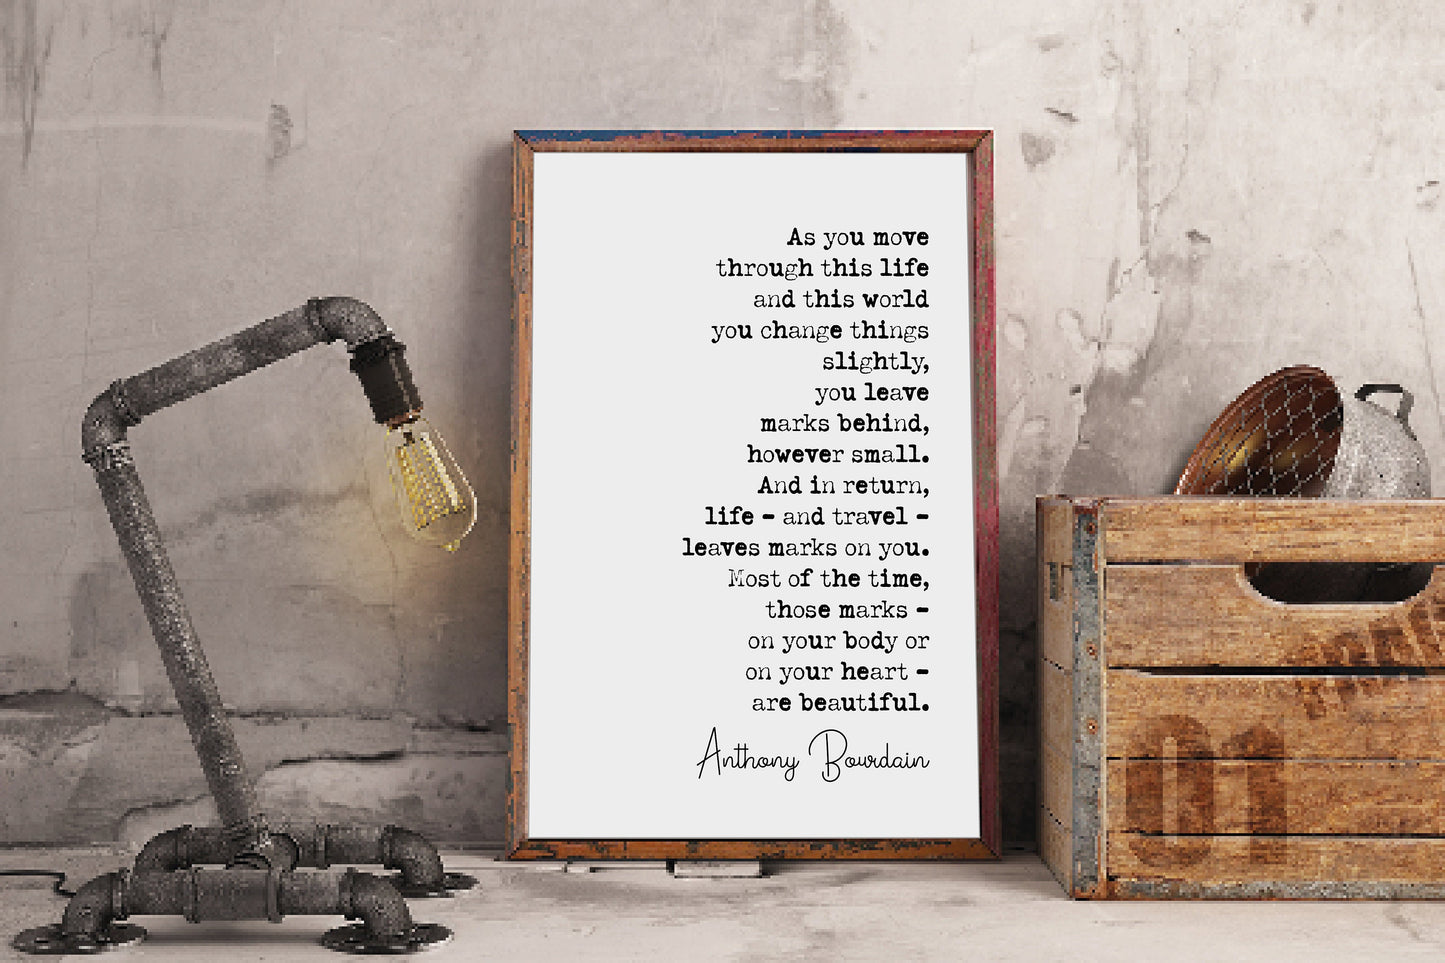 As you move
through this life
and this world
you change things
slightly,
you leave
marks behind,
however small.
And in return,
life - and travel -
leaves marks on you.
Most of the time,
those marks -
on your body or
on your heart -
are beautiful.
Anthony Bourdain
01